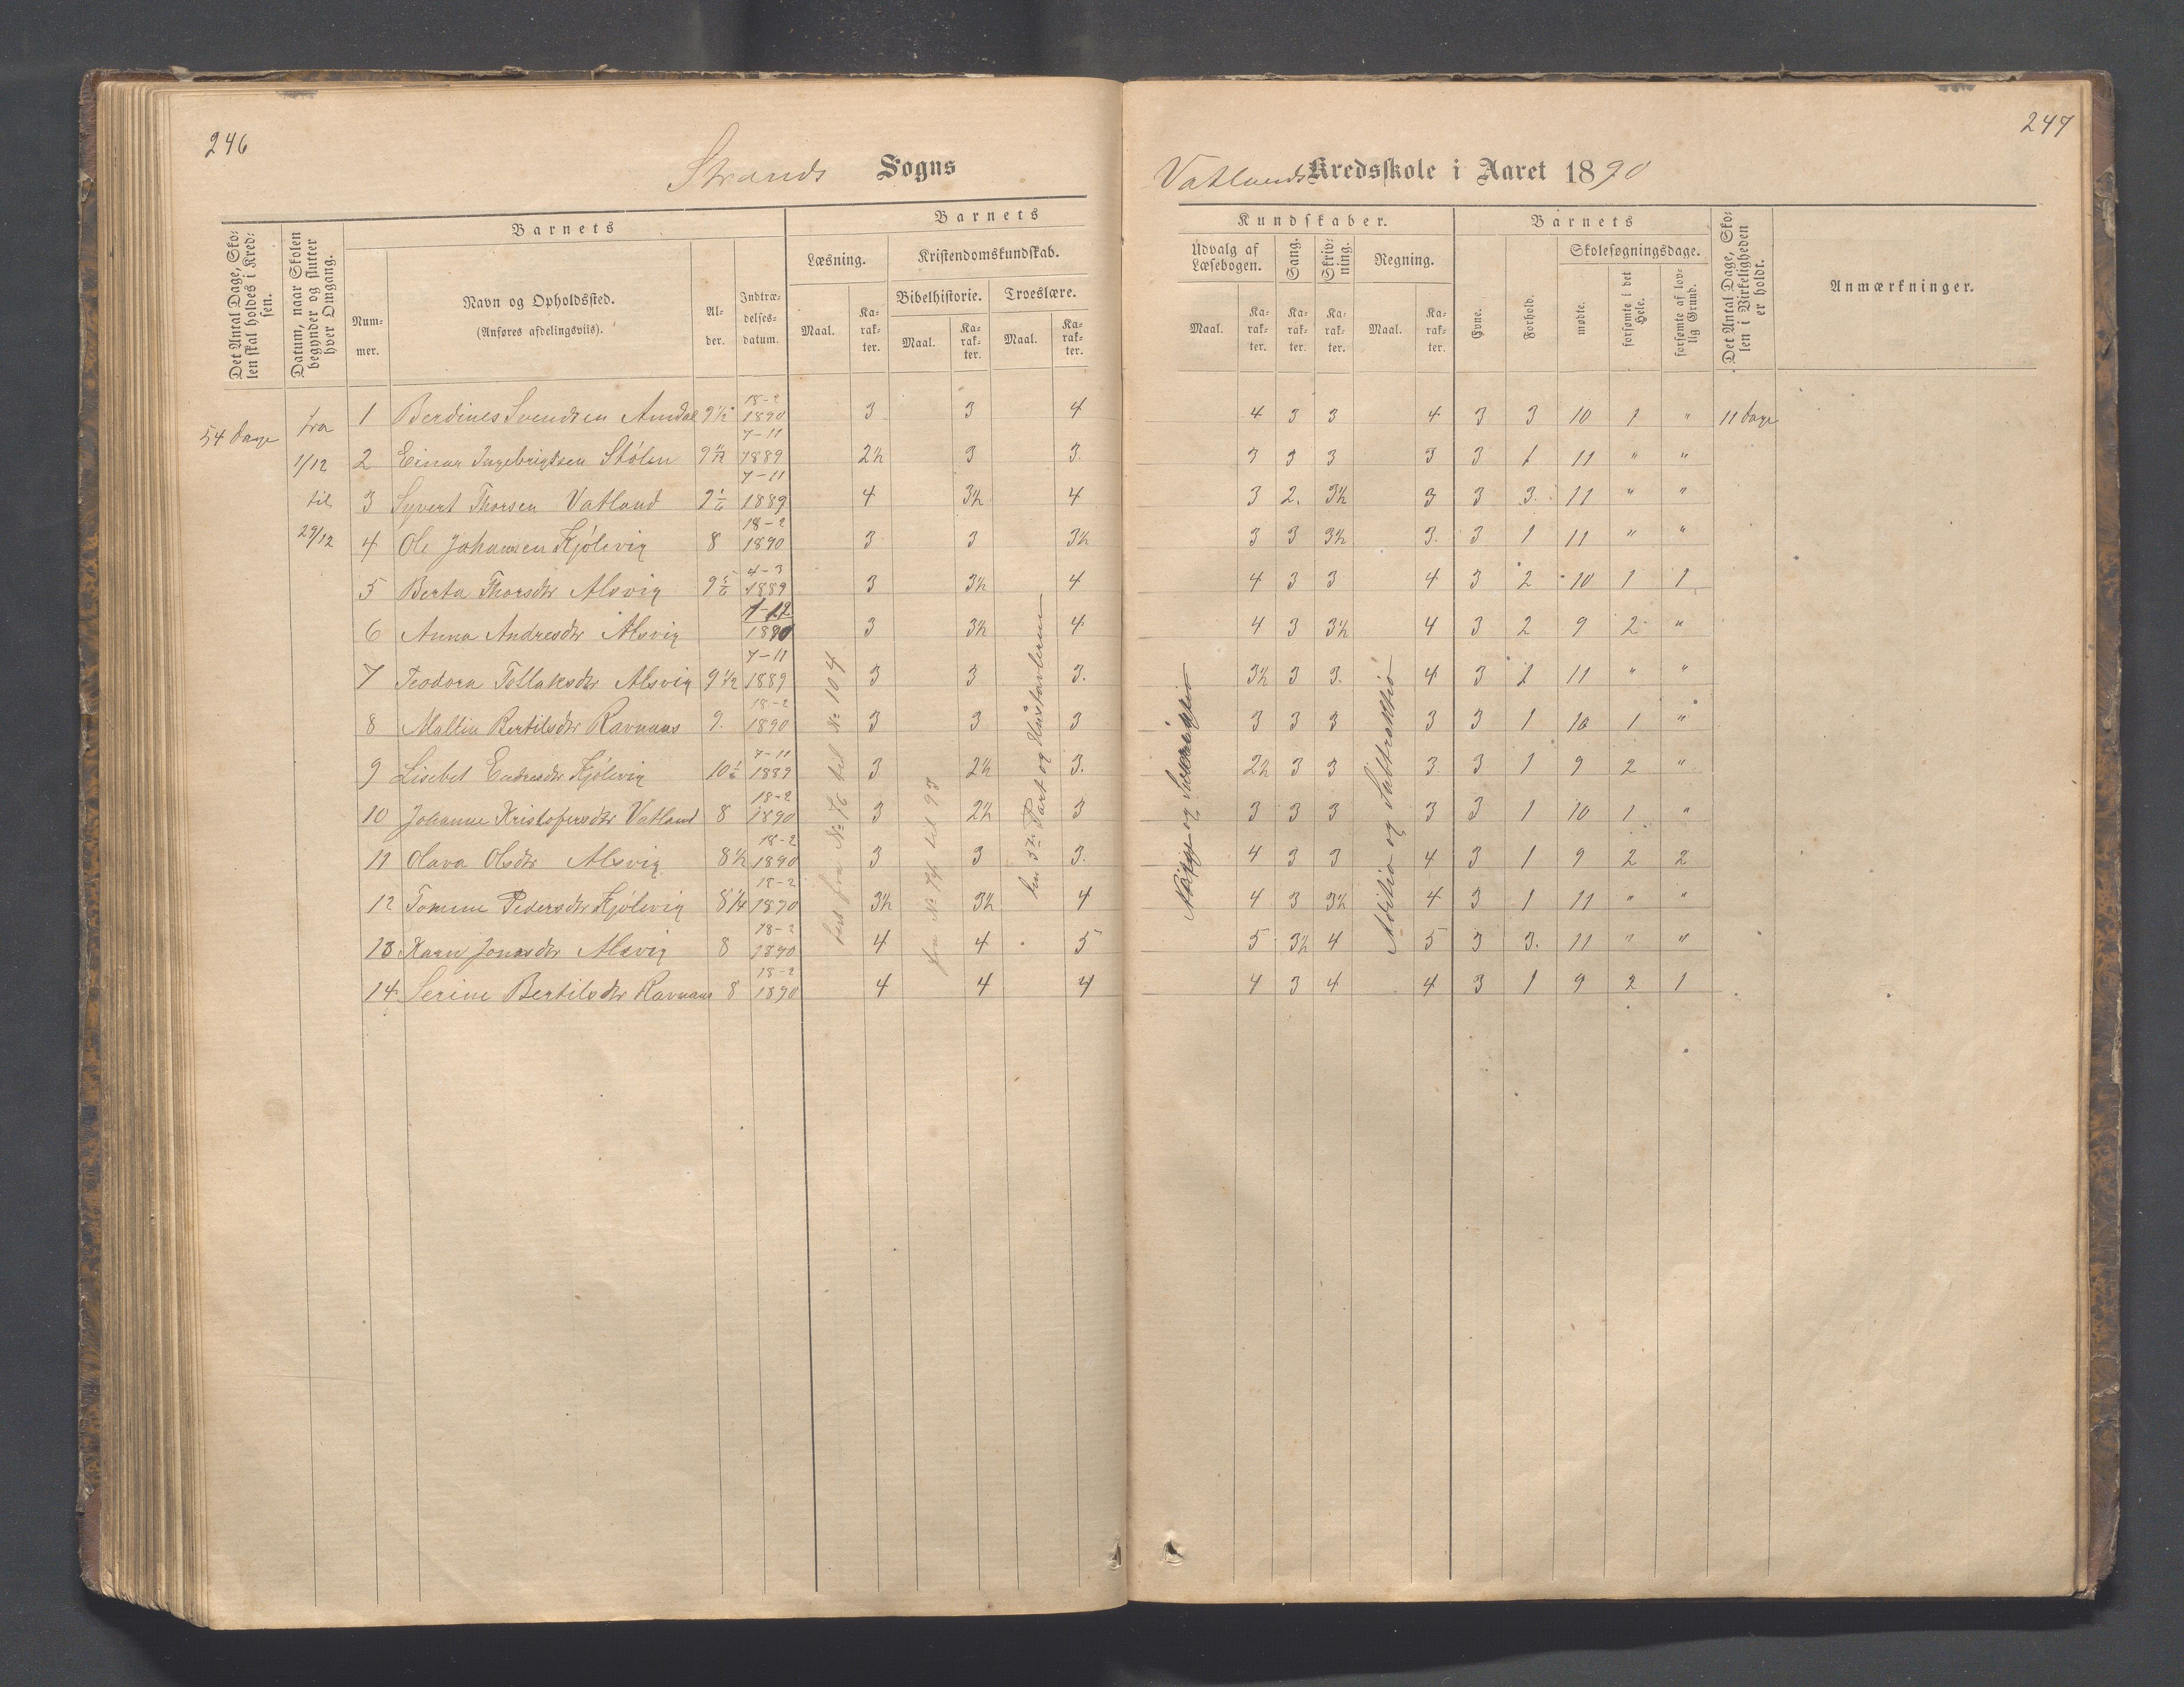 246
Strands Sogns
Det Antal Dage, Skolen skal holdes i Kredsen.
Datum, naar Skolen begynder og slutter hver Omgang.
Barnets
Nummer.
Navn og Opholdssted.
(Anføres afdelingsviis).
Alder.
Indtrædelsesdatum.
Barnets
Læsning.
Maal.
Karakter.
Kristendomskundskab.
Bibelhistorie.
Maal.
Karakter.
Troeslære.
Maal.
Karakter.
54 dage
fra
1/12
til
29/12
1 Berdines Svendsen Amdal 9 1/2 18-2 1890 3 3 4
2 Einar Ingebrigtsen Stólen 9 11/12 7-11 1889 2½ 3 3.
3 Syvert Thorsen Vatland 9 1/6 7-11 1889 4 3½ 4
4 Ole Johansen Kjólevig 8 18-2 1890 3 3 3½
5 Berta Thorsdtr Alsvig 9 5/6 4-3 1889 3 3½ 4
6 Anna Andresdtr Alsvig 1-12 1890 3 3½ 4
7 Teodora Tollaksdtr Alsvig 9 1/12 7-11 1889 3 3 3.
8 Mallin Bertilsdtr Ravnaas 9. 18-2 1890 3 3 3
9 Lisebet Endresdtr Kjólevig 10 1/6 7-11 1889 3 2½ 3.
10 Johanne Kristofersdtr Vatland 8 18-2 1890 3 2½ 3
11 Olava Olsdtr Alsvig 8 1/2 18-2 1890 3 3 3.
12 Tomine Pedersdtr Kjólevig 8 1/4 18-2 1890 3½ 3½ 4
13 Karen Jonasdtr Alsvig 8 18-2 1890 4 4 5
14 Serine Bertilsdtr Ravnaas 8 18-2 1890 4 4 4
læst fra № 76 til № 104
fra № 74 til 93
den 3die Part og Hustavlerne
247
Vatlands Kredsskole i Aaret 1890
Kundskaber.
Udvalg af Læsebogen.
Maal.
Karakter.
Sang.
Karakter.
Skrivning.
Karakter.
Regning.
Maal.
Karakter.
Barnets
Evne.
Forhold.
Skolesøgningsdage.
mødte.
forsømte i det Hele.
forsømte af lovlig Grund.
Det Antal Dage, Skolen i Virkeligheden er holdt.
Anmærkninger.
4 3 3 4 3 3 10 1 " 11 dage
3 3 3 3 3 1 11 " "
3 2. 3½ 3 3 3. 11 " "
3 3 3½ 3. 3 1 11 " "
4 3 3 4 3 2 10 1 1
4 3 3½ 4 3 2 9 2 "
3½ 3 3. 4 3 1 11 " "
3 3 3 3 3 1 10 1 "
2½ 3 3 3. 3 1 9 2 "
3 3 3 3 3 1 10 1 "
4 3 3 4 3 1 9 2 2
4 3 3½ 4 3 1 11 " "
5 3½ 4 5 3 3. 11 " "
4 3 4 4 3 1 9 2 1
og
Aditio og Subtraktió